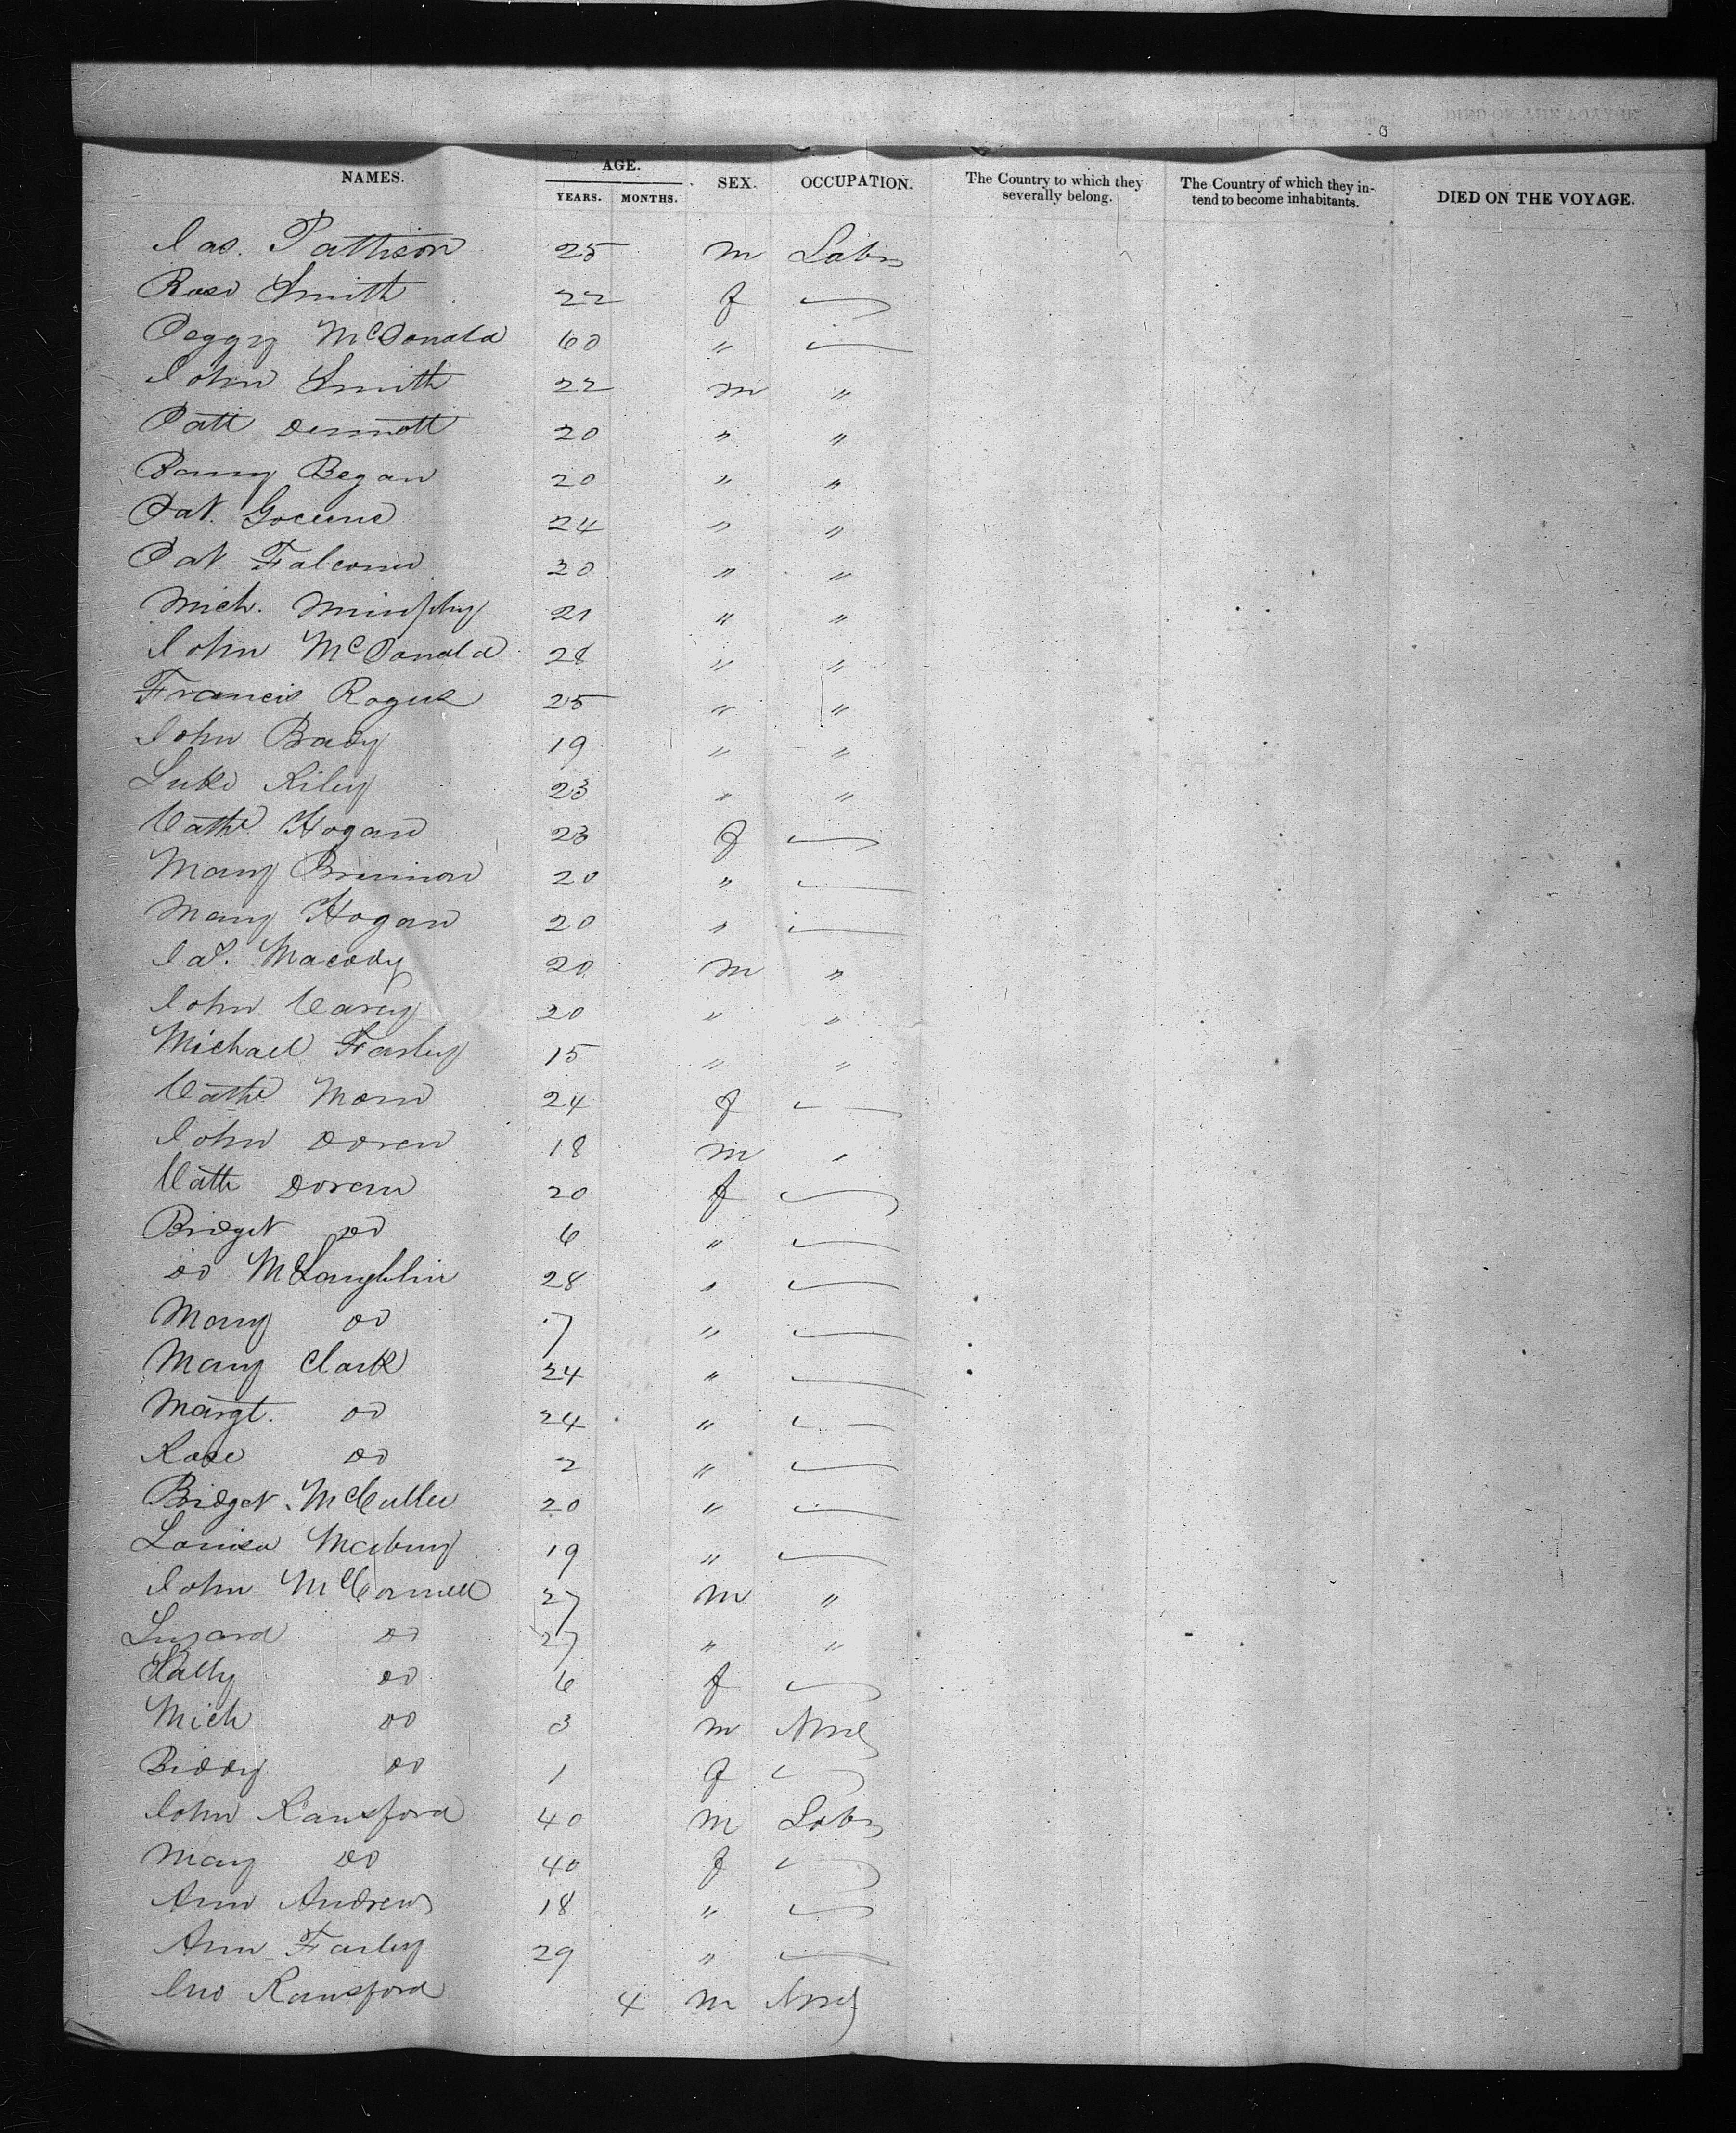 NAMES. AGE. SEX. OCCUPATION. The Country to which they severally belong. The Country of which they intend to become inhabitants. DIED ON THE VOYAGE.
YEARS. MONTHS.
Jas. Pattison 25 m Labr
Rose Smith 22 f
Peggy McDonald 60 "
John Smith 22 m "
Patt Dermott 20 " "
Barny Began 20 " "
Pat. 24 " "
Pat Falconer 20 " "
Mich. Murphy 21 " "
John McDonald 28 " "
Francis Rogers 25 " "
John Brady 19 " "
Luke Riley 23 " "
Cathe Hogan 23 f
Mary Brennon 20 "
Mary Hogan 20 "
Jas. Macody 20 m "
John Carey 20 " "
Michael Farley 15 " "
Cathe Moran 24 f
John Doren 18 m "
Cath Doren 20 f
Bridget Do 6 "
Do McLaughlin 28 "
Mary Do 7 "
Mary Clark 24 "
Margt. Do 24 "
Rose Do 2 "
Bridget McCullen 20 "
Louisa 19 "
John McConnell 27 m "
Do 27 " "
Sally Do 6 f
Mich Do 3 m None
Biddy Do 1 f
John Ransford 40 m Labr
Mary Do 40 f
Ann Andrews 18 "
Ann Farley 29 "
Jno Ransford 4 m None